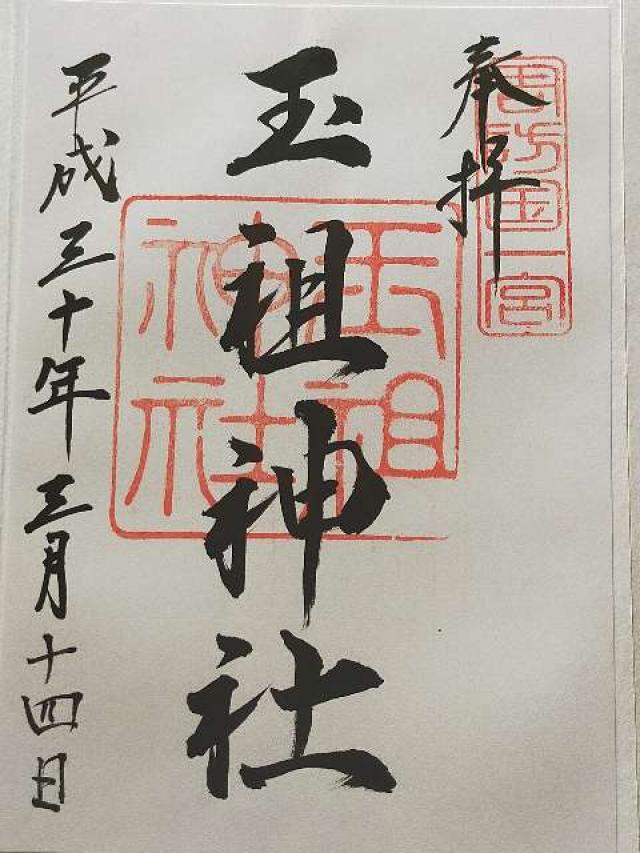 奉拝
周防国一宮
玉祖神社
玉祖神社
平成三十年三月十四日